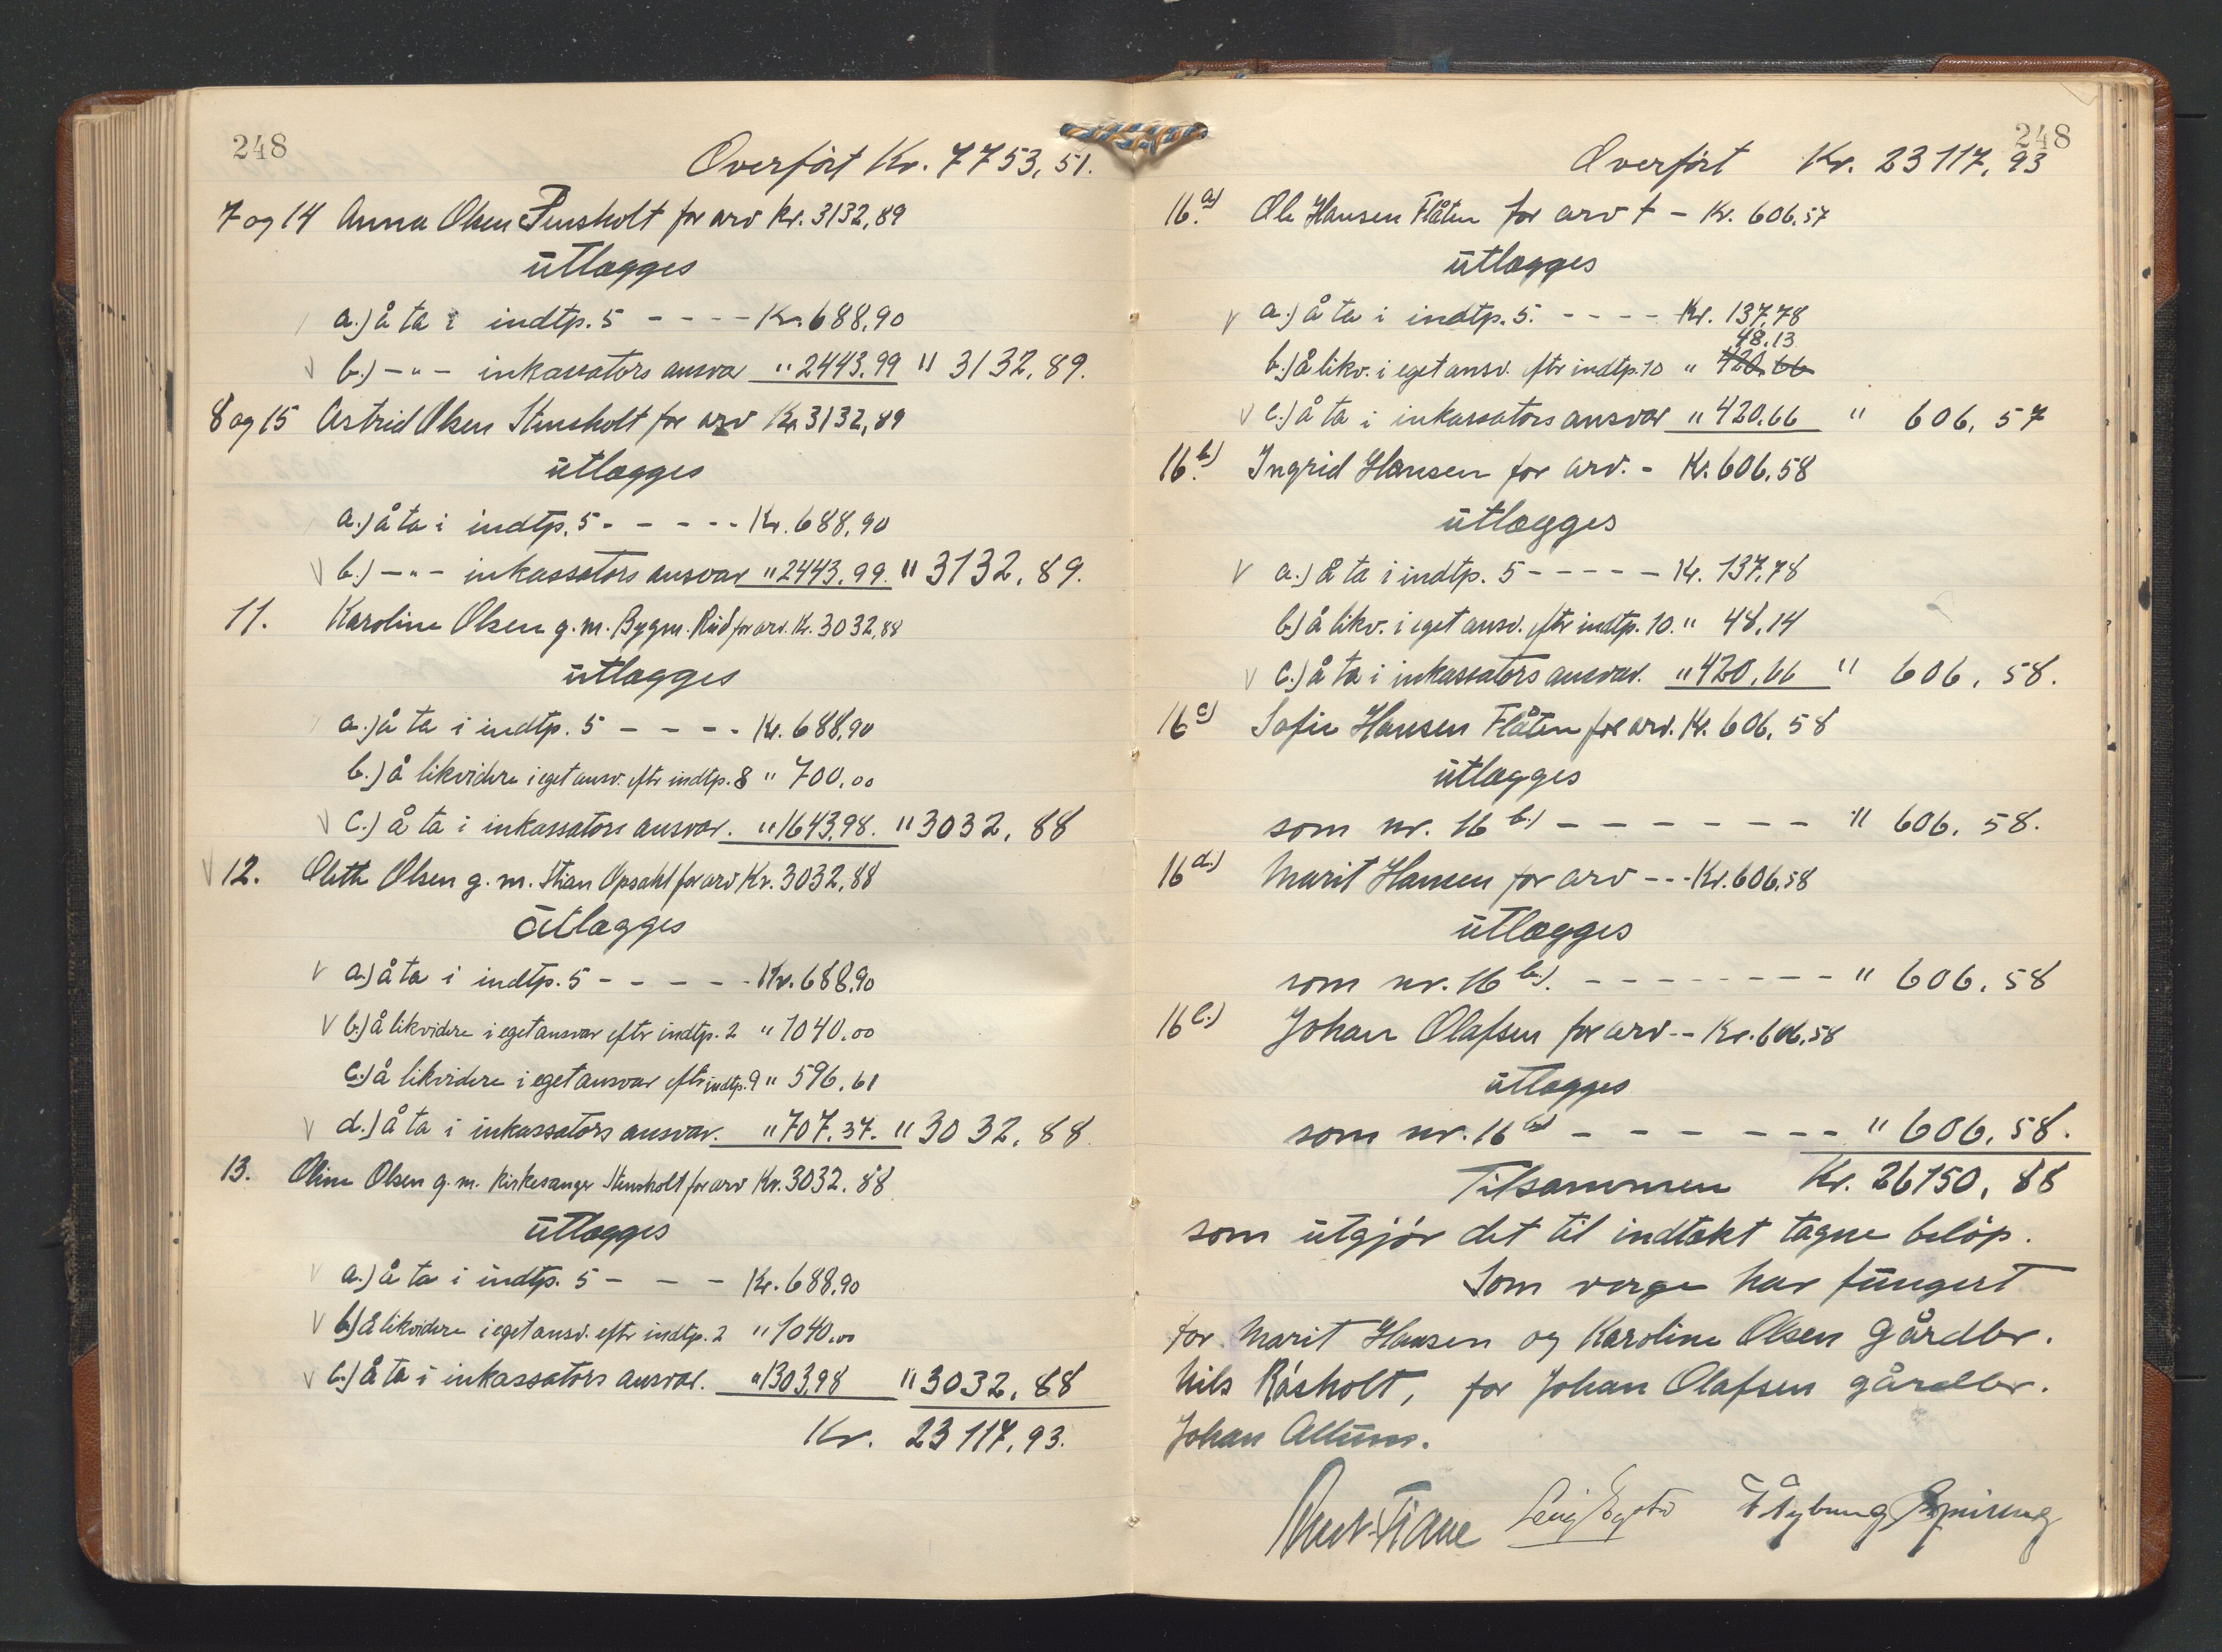 248
Overført Kr. 7753,51.
7 og 14 Anna Olsen Stensholt for arv kr. 3132,89
utlægges
a.) å ta i indtp. 5 - - - - Kr. 688,90
b.) - " - inkassators ansvar " 2443,99 " 3132,89.
8 og 15 Astrid Olsen Stensholt for arv Kr. 3132,89
utlægges
a.) å ta i indtp. 5 - - - - - Kr. 688,90
b.) - " - inkassators ansvar " 2443,99. " 3132,89.
11. Karoline Olsen g. m. Bygm. Rud for arv. Kr. 3032,88
utlægges
a.) å ta i indtp. 5 - - - - Kr. 688,90
b.) å likvidere i eget ansv. eftr indtp. 8 " 700,00
c.) å ta i inkassators ansvar. " 1643,98. " 3032,88
12. Oleth Olsen g. m. Stian Opsahl for arv Kr. 3032,88
utlægges
a.) å ta i indtp. 5 - - - - - Kr. 688,90
b.) å likvidere i eget ansvar eftr indtp. 2 " 1040,00
c.) å likvidere i eget ansvar eftr indtp. 9 " 596,61
d.) å ta i inkassators ansvar. " 707,37. " 3032,88.
13. Oline Olsen g. m. kirkesanger Stensholt for arv Kr. 3032,88
utlægges
a.) å ta i indtp. 5 - - - Kr. 688,90
b.) å likvidere i eget ansv. eftr indtp. 2 " 1040,00
c.) å ta i inkassators ansvar. " 1303,98 " 3032,88
Kr. 23117,93.
248
Overført Kr. 23117,93
16.a) Ole Hansen Flåten for arv † - Kr. 606,57
utlægges
a.) å ta i indtp. 5. - - - - Kr. 137,78
48,13
b.) å likv. i eget ansv. eftr indtp. 10 " 420,66
c.) å ta i inkassators ansvar " 420,66 " 606,57
16.b) Ingrid Hansen for arv. - Kr. 606,58
utlægges
a.) å ta i indtp. 5 - - - - - Kr. 137,78
b.) å likv. i eget ansv. eftr indtp. 10. " 48,14
c.) å ta i inkassators ansvar. " 420,66 " 606,58.
16c) Sofie Hansen Flåten for arv. Kr. 606,58
utlægges
som nr. 16 b.) - - - - - - - " 606,58.
16d.) Marit Hansen for arv - - - Kr. 606,58
utlægges
som nr. 16 b.). - - - - - - - - " 606,58
16e.) Johan Olafsen for arv - - Kr. 606,58
utlægges
som nr. 16 b.) - - - - - - - " 606,58.
Tilsammen Kr. 26150,88
som utgjør det til indtækt tagne beløp.
Som verge har fungert
for Marit Hansen og Karoline Olsen gårdbr.
Nils Råsholt, for Johan Olafsen gårdbr.
Johan Allum.